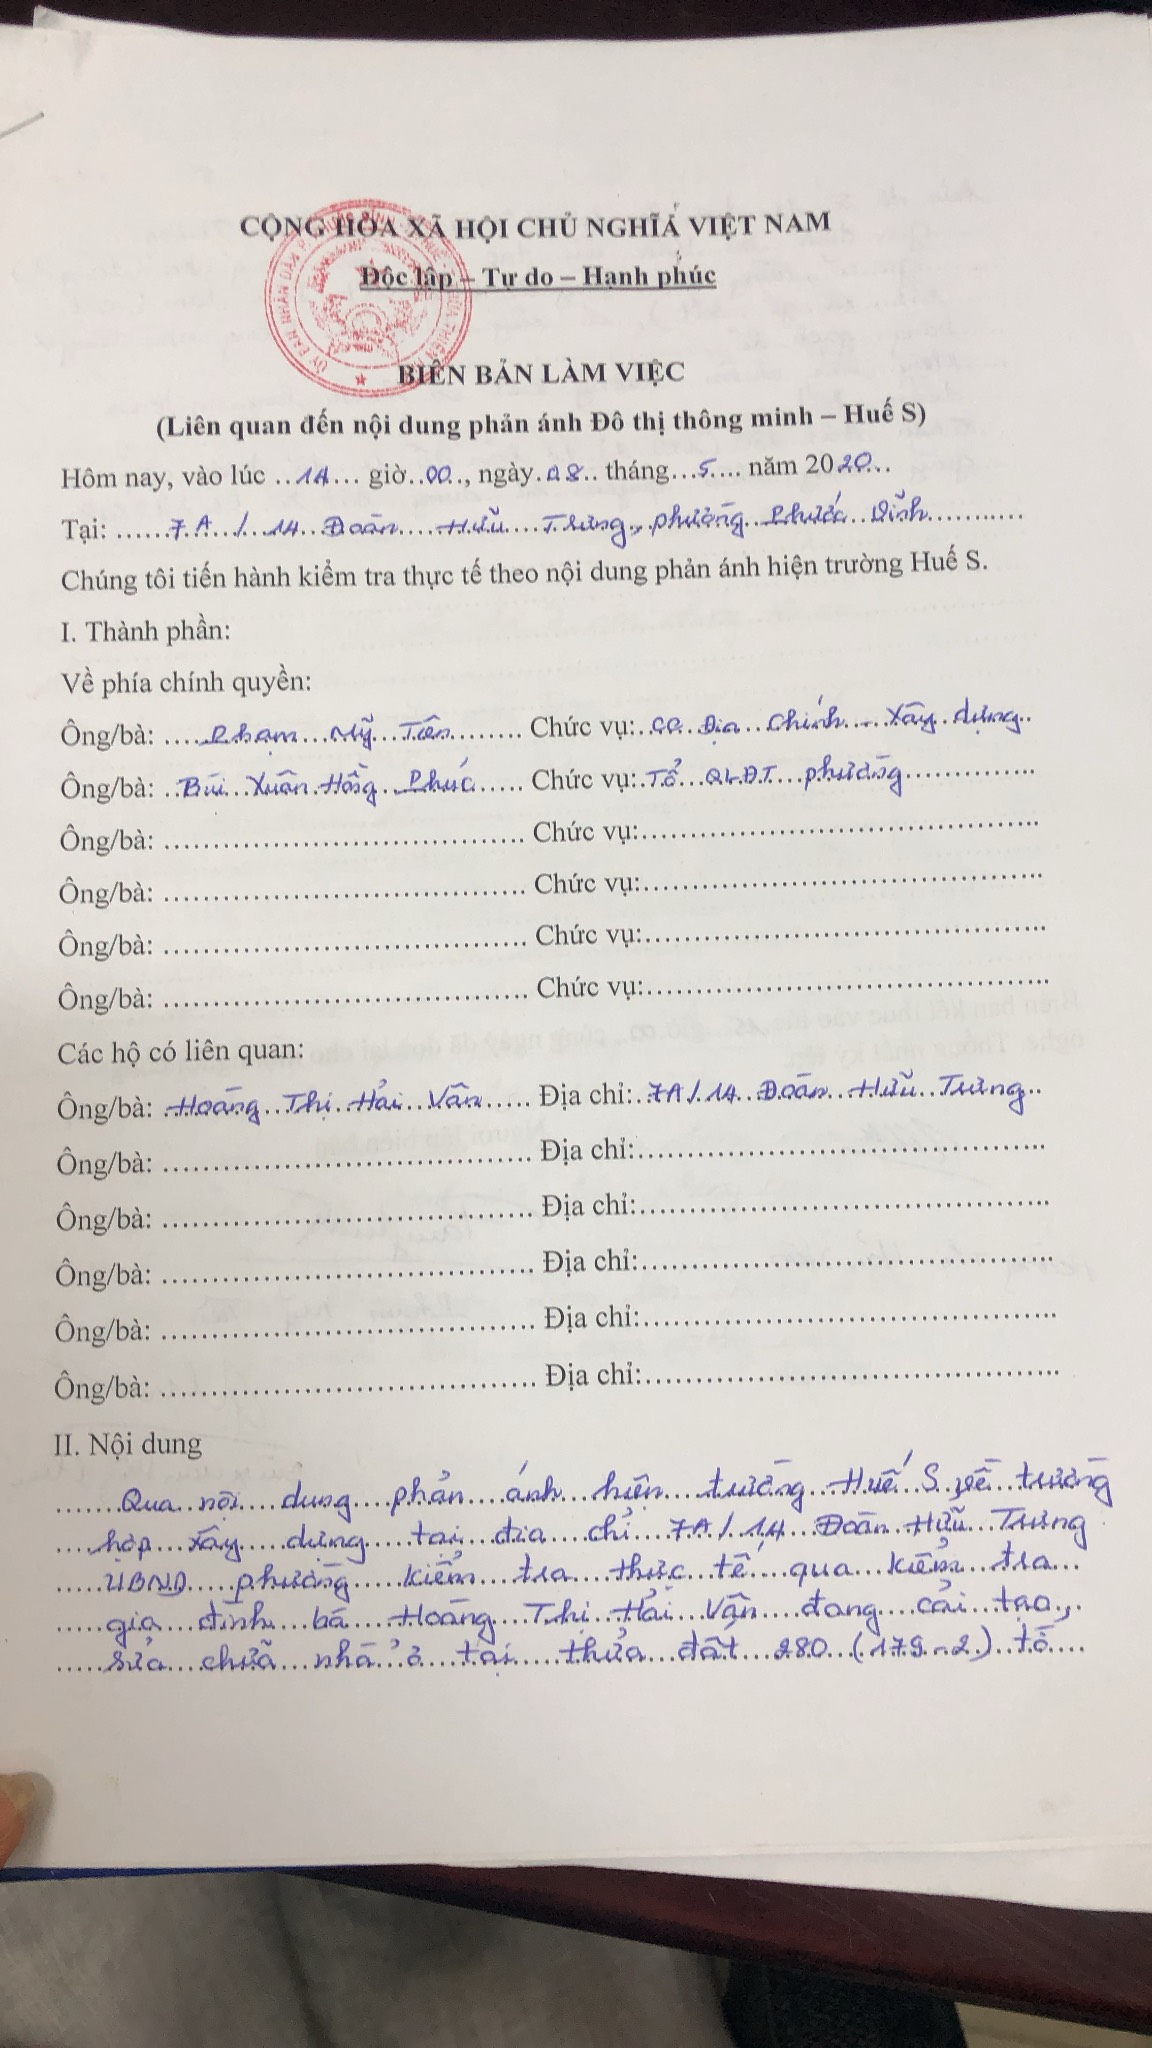 CỘNG HÒA XÃ HỘI CHỦ NGHĨA VIỆT NAM
Độc lập – Tự do – Hạnh phúc
BIÊN BẢN LÀM VIỆC
(Liên quan đến nội dung phản ánh Đô thị thông minh – Huế S)
Hôm nay, vào lúc ..14... giờ..00.., ngày.08.. tháng...5.... năm 2020...
Tại: ......7A../..14..Đoàn....Hữu...Trưng., phường..Phước..Vĩnh...........
Chúng tôi tiến hành kiểm tra thực tế theo nội dung phản ánh hiện trường Huế S.
I. Thành phần:
Về phía chính quyền:
Ông/bà: ....Phạm...Mỹ...Tiên........ Chức vụ:..CC..Địa...Chính..-..Xây..dựng..
Ông/bà: ..Bùi..Xuân.Hồng..Phúc..... Chức vụ:.Tổ...QLĐT...phường..............
Ông/bà: .................................... Chức vụ:........................................
Ông/bà: .................................... Chức vụ:........................................
Ông/bà: .................................... Chức vụ:........................................
Ông/bà: .................................... Chức vụ:........................................
Các hộ có liên quan:
Ông/bà: .Hoàng..Thị..Hải..Vân..... Địa chỉ:..7A/.14..Đoàn..Hữu..Trưng..
Ông/bà: .................................... Địa chỉ:........................................
Ông/bà: .................................... Địa chỉ:........................................
Ông/bà: .................................... Địa chỉ:........................................
Ông/bà: .................................... Địa chỉ:........................................
Ông/bà: .................................... Địa chỉ:........................................
II. Nội dung
.......Qua..nội....dung....phản....ánh...hiện...trường...Huế S..về..trường
....hợp...xây....dựng....tại...địa...chỉ...7A/.14...Đoàn..Hữu...Trưng
.....UBND.....phường....kiểm...tra...thực..tế..qua...kiểm...tra...
.....gia...đình...bà...Hoàng...Thị..Hải...Vân...đang...cải...tạo,..
.....sửa...chữa...nhà..ở...tại.....thửa...đất...280..(.179.-2.)..tờ....